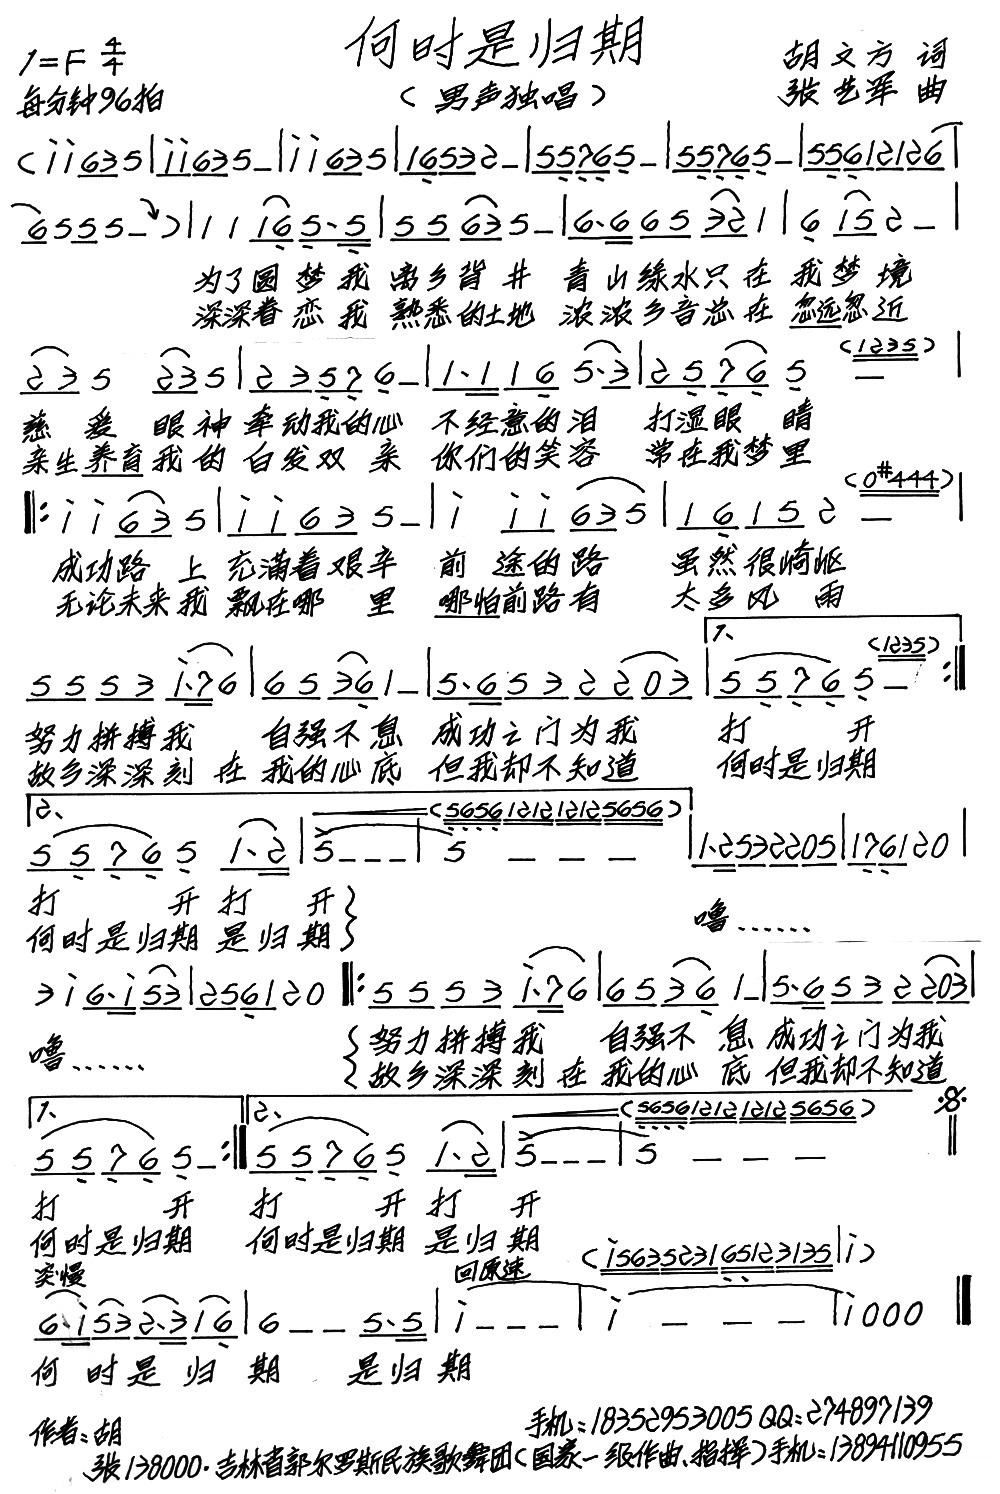 何时是归期
1=F 4/4
胡文方 词
每分钟96拍
（男声独唱）
张艺军 曲
(i i 6 3 5 | i i 6 3 5 – | i i 6 3 5 | 1 6 5 3 2 – | 5 5 7 6 5 – | 5 5 7 6 5 – | 5 5 6 1 2 1 2 6 |
6 5 5 5 – ) | 1 1 1 6 5 · 5 | 5 5 6 3 5 – | 6 · 6 6 5 3 2 1 | 6 1 5 2 – |
为了圆梦我 离乡背井 青山缘水只在我梦境
深深眷恋我 熟悉的土地 浓浓乡音总在忽远忽近
(1 2 3 5)
2 3 5 2 3 5 | 2 3 5 7 6 – | 1 · 1 1 6 5 · 3 | 2 5 7 6 5 – |
慈爱眼神牵动我的心 不经意的泪 打湿眼睛
亲生养育我的白发双亲 你们的笑容 常在我梦里
(0 #4 4 4)
‖: i i 6 3 5 | i i 6 3 5 – | i i i 6 3 5 | 1 6 1 5 2 – |
成功路上充满着艰辛 前途的路 虽然很崎岖
无论未来我飘在哪里 哪怕前路有 太多风雨
1、 (1 2 3 5)
5 5 5 3 i · 7 6 | 6 5 3 6 1 – | 5 · 6 5 3 2 2 0 3 | 5 5 7 6 5 – :‖
努力拼搏我 自强不息 成功之门为我 打开
故乡深深刻在我的心底 但我却不知道 何时是归期
2、 (5656 1212 1212 5656)
5 5 7 6 5 1 · 2 | 5 – – – | 5 – – – | 1 · 2 5 3 2 2 0 5 | 1 7 6 1 2 0 |
打开打开
噜……
何时是归期是归期
3 i 6 · i 5 3 | 2 5 6 1 2 0 ‖: 5 5 5 3 i · 7 6 | 6 5 3 6 1 – | 5 · 6 5 3 2 2 0 3 |
噜…… 努力拼搏我 自强不息 成功之门为我
故乡深深刻在我的心底 但我却不知道
1、 2、 (5656 1212 1212 5656)
5 5 7 6 5 – :‖ 5 5 7 6 5 1 · 2 | 5 – – – | 5 – – – ‖
打开 打开打开
何时是归期 何时是归期是归期
突慢 回原速 (i 5 6 3 5 2 3 1 6 5 1 2 3 1 3 5 | i)
6 · i 5 3 2 · 3 1 6 | 6 – – 5 · 5 | i – – – | i – – – | i 0 0 0 ‖
何时是归期 是归期
作者：胡 手机：18352953005 QQ：274897139
张138000·吉林省郭尔罗斯民族歌舞团（国家一级作曲、指挥）手机：13894110955